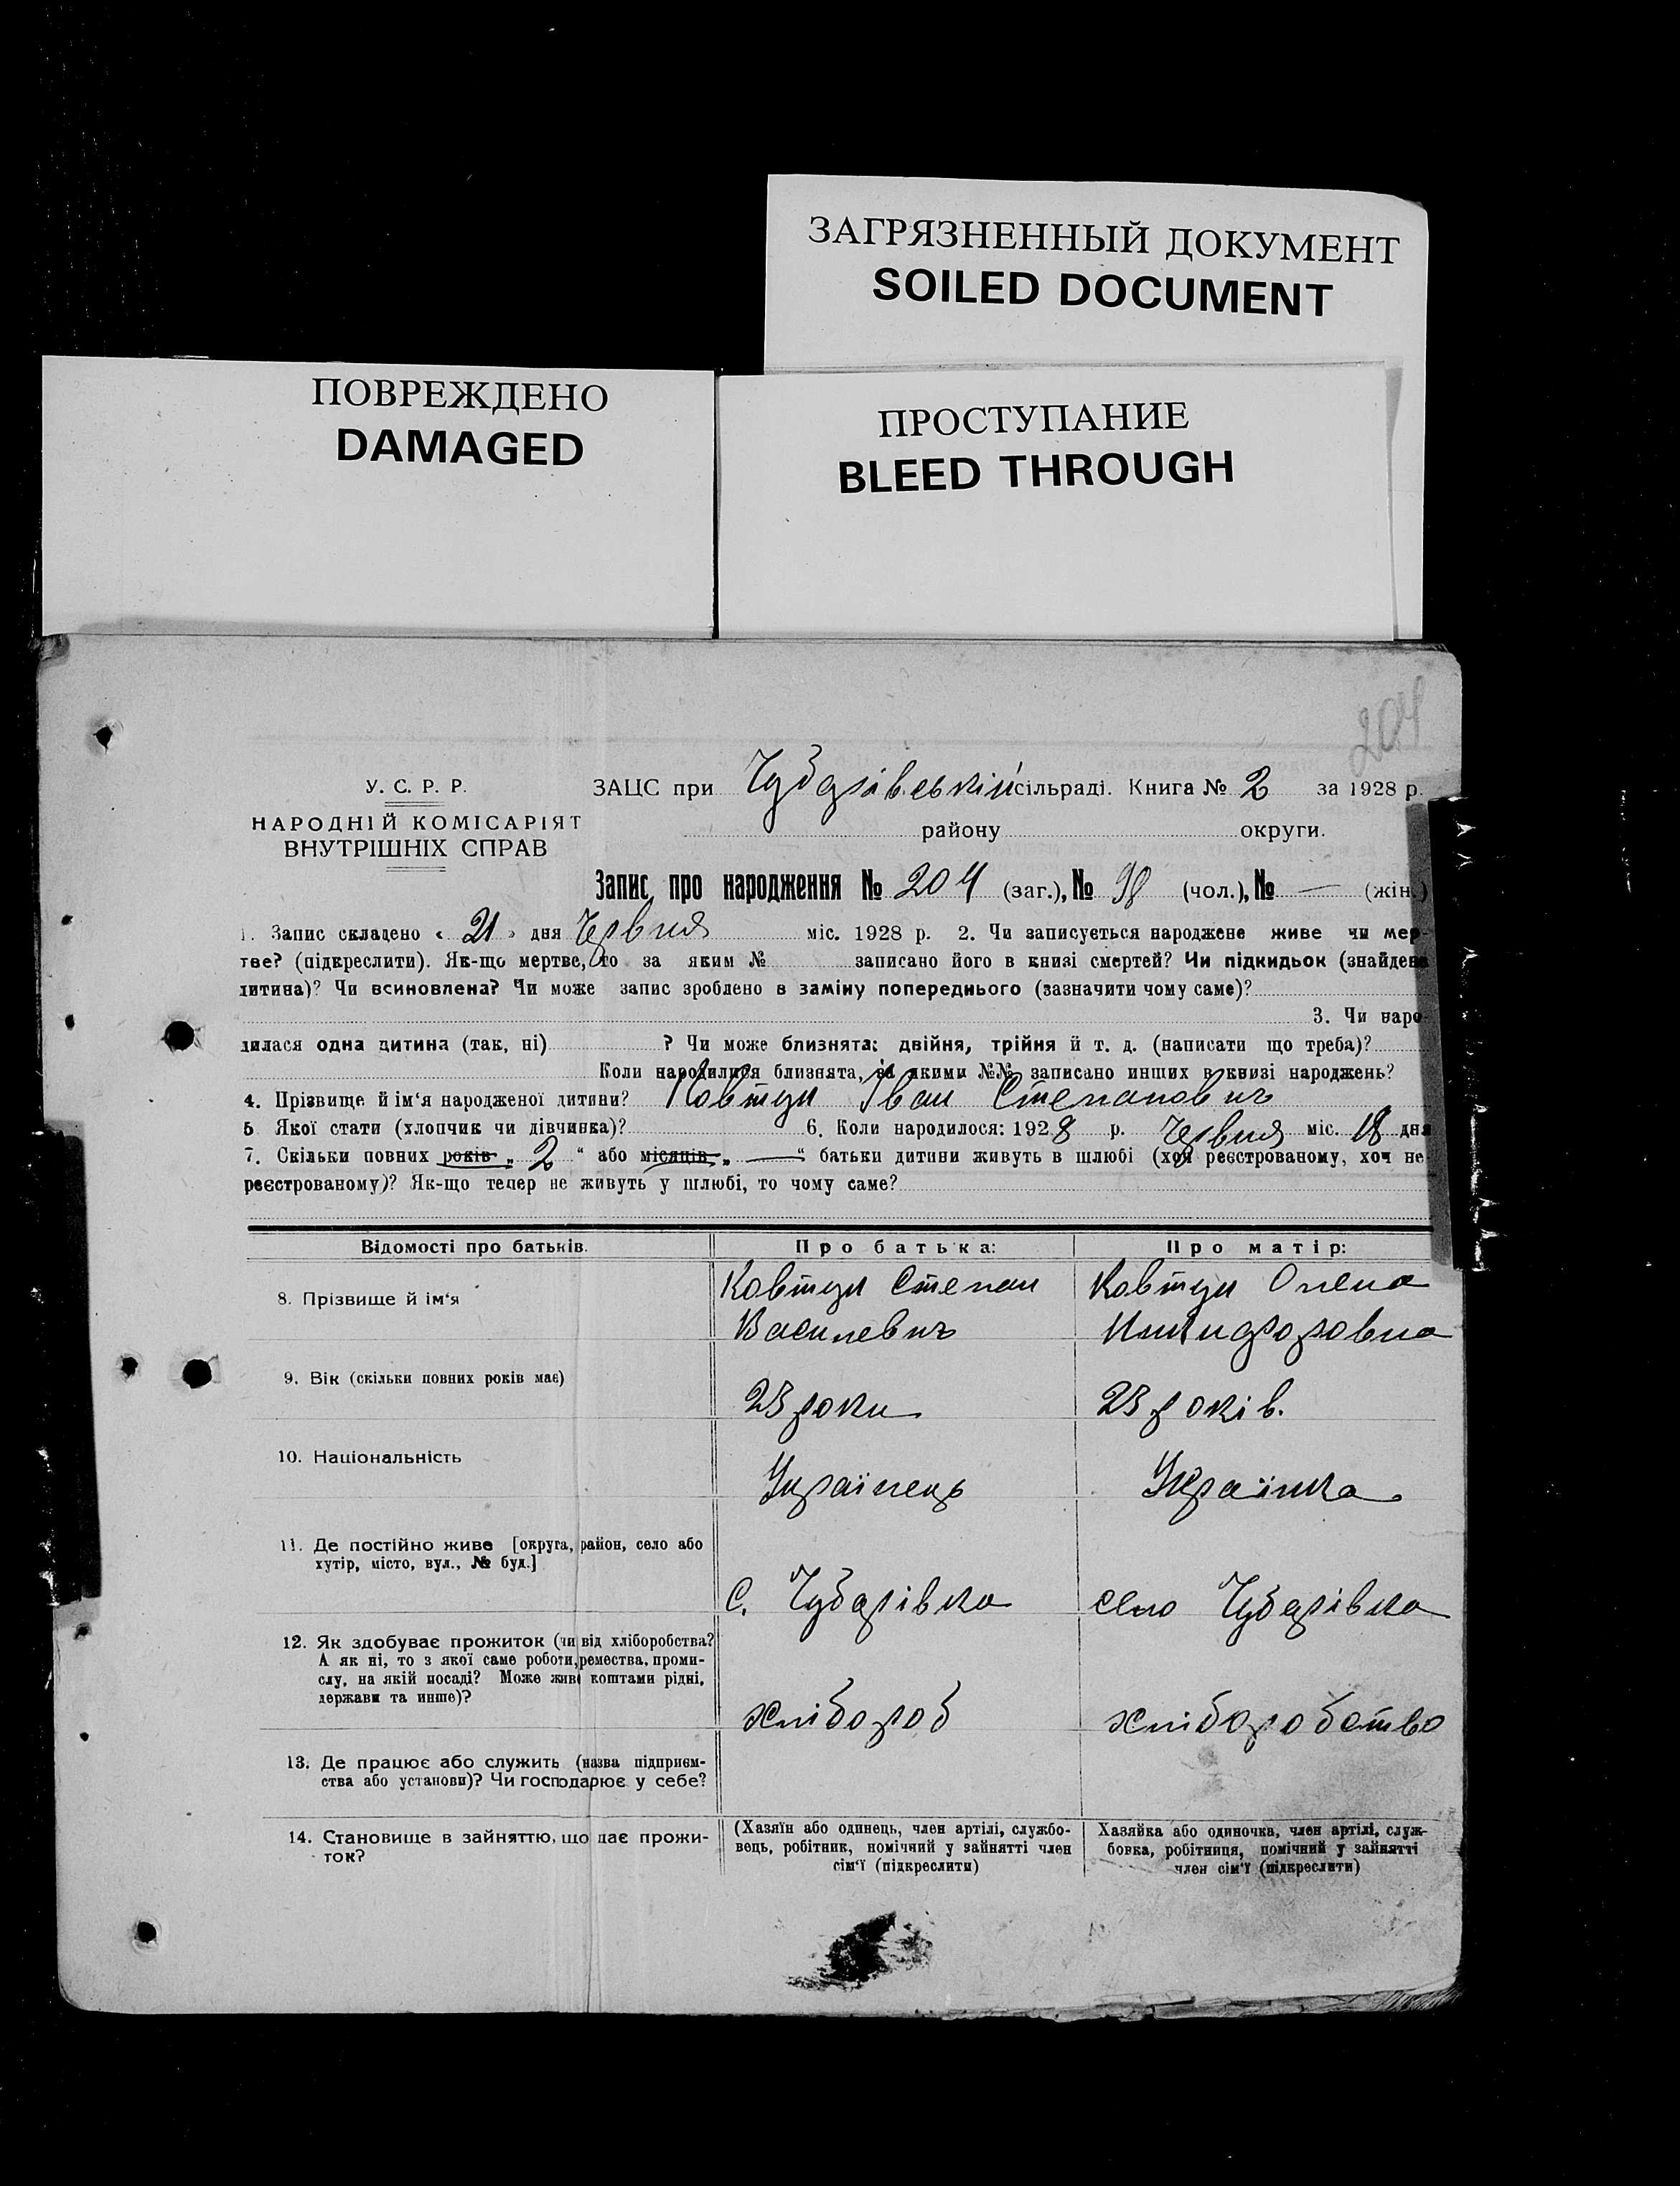 ЗАГРЯЗНЕННЫЙ ДОКУМЕНТ
SOILED DOCUMENT
ПОВРЕЖДЕНО
DAMAGED
ПРОСТУПАНИЕ
BLEED THROUGH
204
У. С. Р. Р.
НАРОДНІЙ КОМІСАРІЯТ
ВНУТРІШНІХ СПРАВ
ЗАЦС при Чубарівській сільраді. Книга № 2 за 1928 р.
району округи.
Запис про народження № 204 (заг.), № 98 (чол.), № — (жін.)
1. Запис складено « 21 » дня Червня міс. 1928 р. 2. Чи записується народжене живе чи мер-
тве? (підкреслити). Як-що мертве, то за яким № записано його в книзі смертей? Чи підкидьок (знайдена
дитина)? Чи всиновлена? Чи може запис зроблено в заміну попереднього (зазначити чому саме)?
3. Чи наро-
дилася одна дитина (так, ні) ? Чи може близнята: двійня, трійня й т. д. (написати що треба)?
Коли народилися близнята, за якими №№ записано инших в книзі народжень?
4. Прізвище й ім'я народженої дитини? Ковтун Іван Степанович
5 Якої стати (хлопчик чи дівчинка)? 6. Коли народилося: 1928 р. Червня міс. 18 дня
7. Скільки повних років „ 2 “ або місяців „ — “ батьки дитини живуть в шлюбі (хоч реєстрованому, хоч не
реєстрованому)? Як-що тепер не живуть у шлюбі, то чому саме?
Відомості про батьків. Про батька: Про матір:
8. Прізвище й ім'я Ковтун Степан Ковтун Олена
Василевич
9. Вік (скільки повних років має)
23 роки 23 років.
10. Національність
Українець Українка
11. Де постійно живе [округа, район, село або
хутір, місто, вул., № буд.]
с. Чубарівка село Чубарівка
12. Як здобуває прожиток (чи від хліборобства?
А як ні, то з якої саме роботи, ремества, проми-
слу, на якій посаді? Може живе коштами рідні,
держави та инше)?
хлібороб хліборобство
13. Де працює або служить (назва підприєм-
ства або установи)? Чи господарює у себе?
14. Становище в зайняттю, що дає прожи-
ток?
(Хазяїн або одинець, член артілі, службо-
вець, робітник, помічний у зайнятті член
сім'ї (підкреслити)
Хазяйка або одиночка, член артілі, служ-
бовка, робітниця, помічний у зайнятті
член сім'ї (підкреслити)